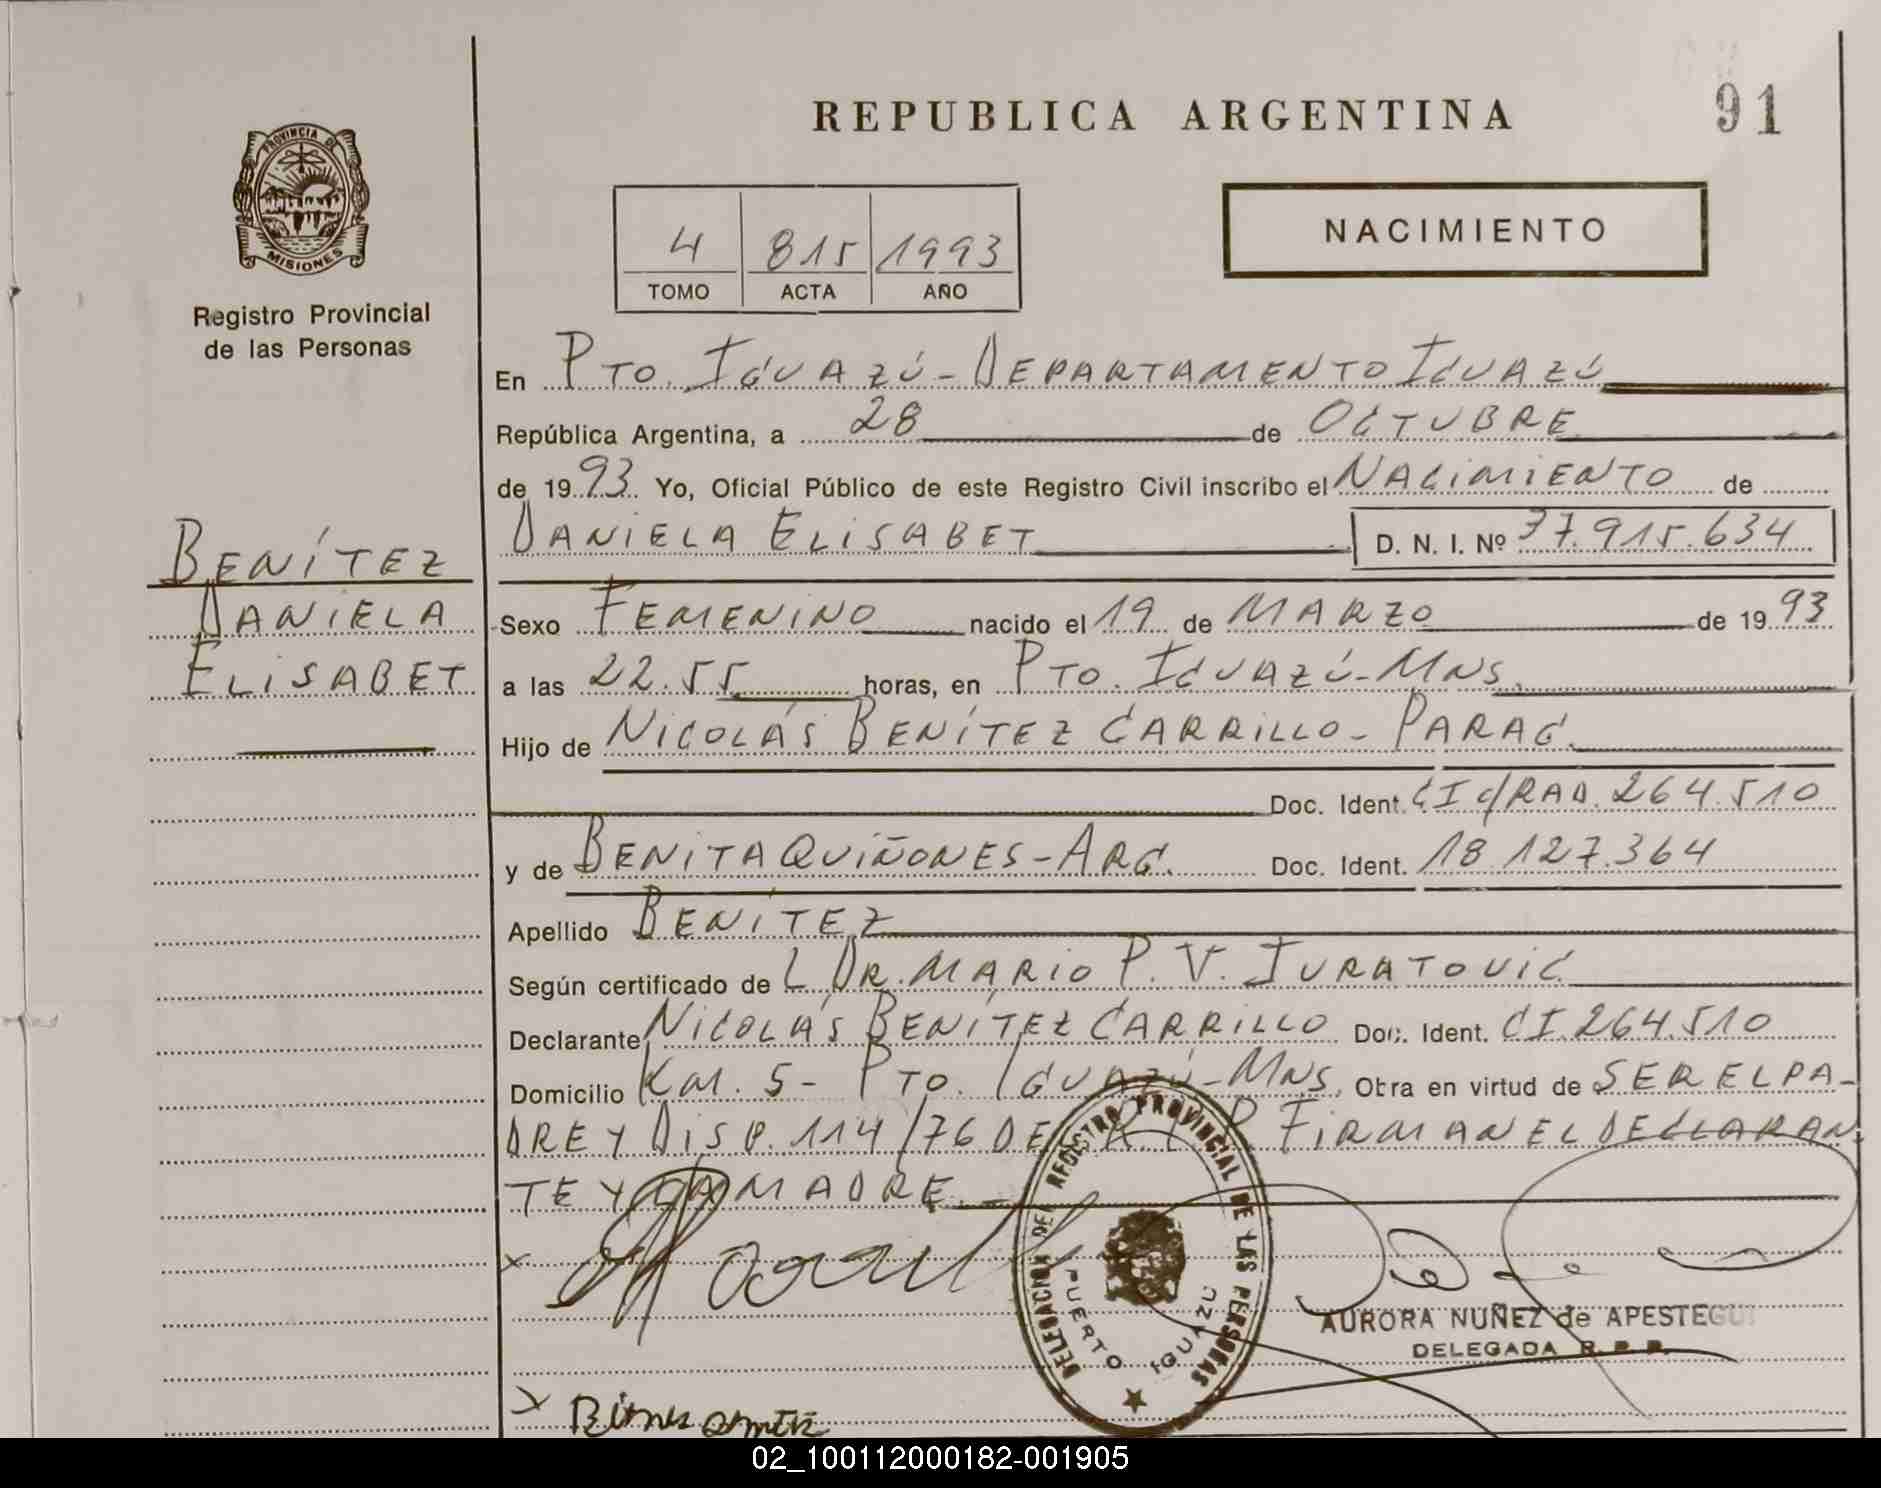 REPUBLICA ARGENTINA
91
PROVINCIA DE
MISIONES
Registro Provincial
de las Personas
4 815 1993
TOMO ACTA AÑO
NACIMIENTO
En PTO. IGUAZÚ - DEPARTAMENTO IGUAZÚ
República Argentina, a 28 de OCTUBRE
de 1993 Yo, Oficial Público de este Registro Civil inscribo el NACIMIENTO de
DANIELA ELISABET D. N. I. Nº 37.915.634
BENÍTEZ
DANIELA
ELISABET
Sexo FEMENINO nacido el 19 de MARZO de 1993
a las 22.55 horas, en PTO. IGUAZÚ - MNS.
Hijo de NICOLÁS BENÍTEZ CARRILLO - PARAG.
Doc. Ident. CI c/RAD. 264.510
y de BENITA QUIÑONES - ARG. Doc. Ident. 18.127.364
Apellido BENÍTEZ
Según certificado de L DR. MARIO P. V. IURATOVIC
Declarante NICOLÁS BENÍTEZ CARRILLO Doc. Ident. CI. 264.510
Domicilio KM. 5 - PTO. IGUAZÚ - MNS. Obra en virtud de SER EL PA-
DRE Y DISP. 114/76 DE R. P. FIRMAN EL DECLARAN
TE Y LA MADRE.
DELEGACION DEL REGISTRO PROVINCIAL DE LAS PERSONAS
PUERTO IGUAZU
AURORA NUÑEZ de APESTEGUI
DELEGADA R. P. P.
02_100112000182-001905